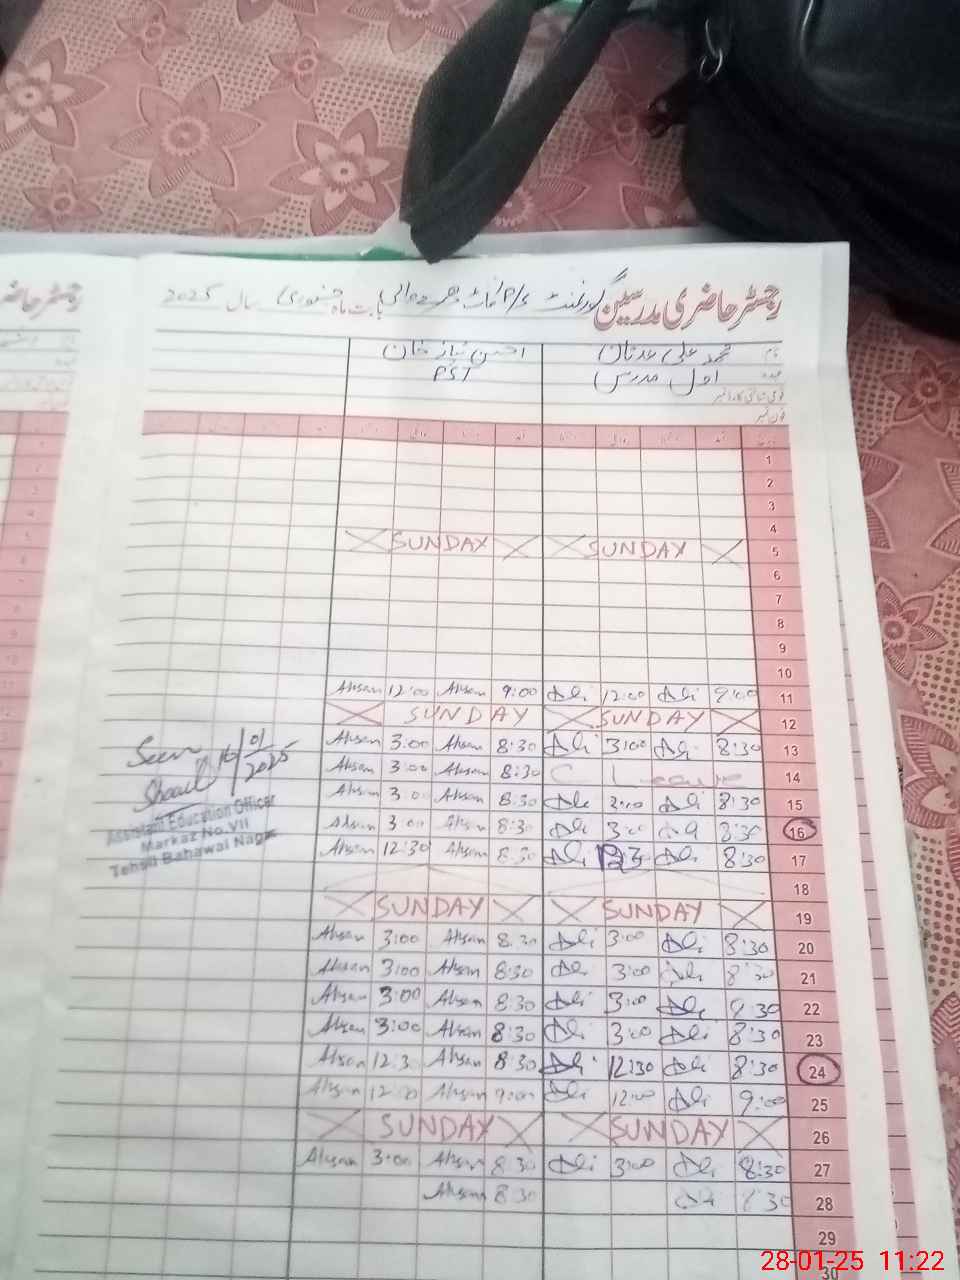 رجسٹر حاضری مدرسین گورنمنٹ P/S بابت ماہ جنوری سال 2025
نام محمد علی عدنان احسن نیاز خان
عہدہ اول مدرس PST
قومی شناختی کارڈ نمبر
فون نمبر
1
2
3
4
5 SUNDAY SUNDAY
6
7
8
9
10
11 9:00 Ali 12:00 Ali 9:00 Ahsan 12:00 Ahsan
12 SUNDAY SUNDAY
13 8:30 Ali 3:00 Ali 8:30 Ahsan 3:00 Ahsan
14 C Leave 8:30 Ahsan 3:00 Ahsan
15 8:30 Ali 3:00 Ali 8:30 Ahsan 3:00 Ahsan
16 8:30 Ali 3:00 Ali 8:30 Ahsan 3:00 Ahsan
17 8:30 Ali 12:30 Ali 8:30 Ahsan 12:30 Ahsan
18
19 SUNDAY SUNDAY
20 8:30 Ali 3:00 Ali 8:30 Ahsan 3:00 Ahsan
21 8:30 Ali 3:00 Ali 8:30 Ahsan 3:00 Ahsan
22 8:30 Ali 3:00 Ali 8:30 Ahsan 3:00 Ahsan
23 8:30 Ali 3:00 Ali 8:30 Ahsan 3:00 Ahsan
24 8:30 Ali 12:30 Ali 8:30 Ahsan 12:30 Ahsan
25 9:00 Ali 12:00 Ali 9:00 Ahsan 12:00 Ahsan
26 SUNDAY SUNDAY
27 8:30 Ali 3:00 Ali 8:30 Ahsan 3:00 Ahsan
28 8:30 Ali 8:30 Ahsan
29
30
Seen 16/01/2025
Assistant Education Officer
Markaz No.VII
Tehsil Bahawal Nagar
28-01-25 11:22